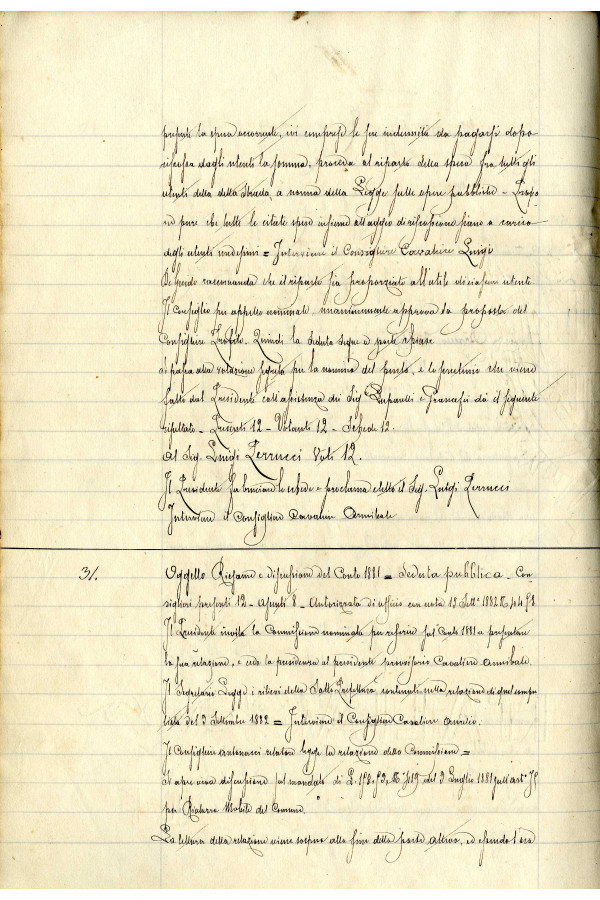 presente la spesa occorrente, ivi comprese le sue indennità da pagarsi dopo
riscossa dagli utenti la somma, proceda al riparto della spesa fra tutti gli
utenti della detta Strada, a norma della Legge sulle opere pubbliche - Propo
ne pure che tutte le citate spese insieme all'aggio di riscossione siano a carico
degli utenti medesimi = Interviene il Consigliere Cavalieri Luigi
raccomanda che il riparto sia proporzionato all'utile di ciascun utente.
Il Consiglio per appello nominale unanimamente approva la proposta del
Consigliere Quindi la seduta segue a porte chiuse
Si passa alla votazione segreta per la nomina del perito, e lo scrutinio che viene
fatto dal Presidente coll'assistenza dei Sig. e Francesi dà il seguente
risultato - Presenti 12 - Votanti 12 - Schede 12.
Al Sig. Luigi Perrucci Voti 12.
Il Presidente fa bruciare le schede e proclama eletto il Sig. Luigi Perrucci
Interviene il Consigliere Cavalieri Annibale
31. Oggetto Riesame e discussione del Conto 1881 = Seduta pubblica - Con
siglieri presenti 12 - Assenti 8 - Autorizzata di ufficio con nota 15 Sett.e 1882
Il Presidente invita la Commissione nominata per riferire sul Conto 1881 a presentare
la sua relazione, e cede la presidenza al presidente provvisorio Cavalieri Annibale.
Il Segretario legge i rilievi della Sotto Prefettura contenuti nella relazione di quel compu
tista del 3 Settembre 1882 = Interviene il Consigliere Cavalieri Aurelio.
Il Consigliere Antonacci relatore legge la relazione della Commissione =
Si apre una discussione sul mandato di del 3 Luglio 1881 sull'art.
per Ricchezza Mobile del Comune.
La lettura della relazione viene sospesa alla fine della parte attiva, ed essendo l'ora